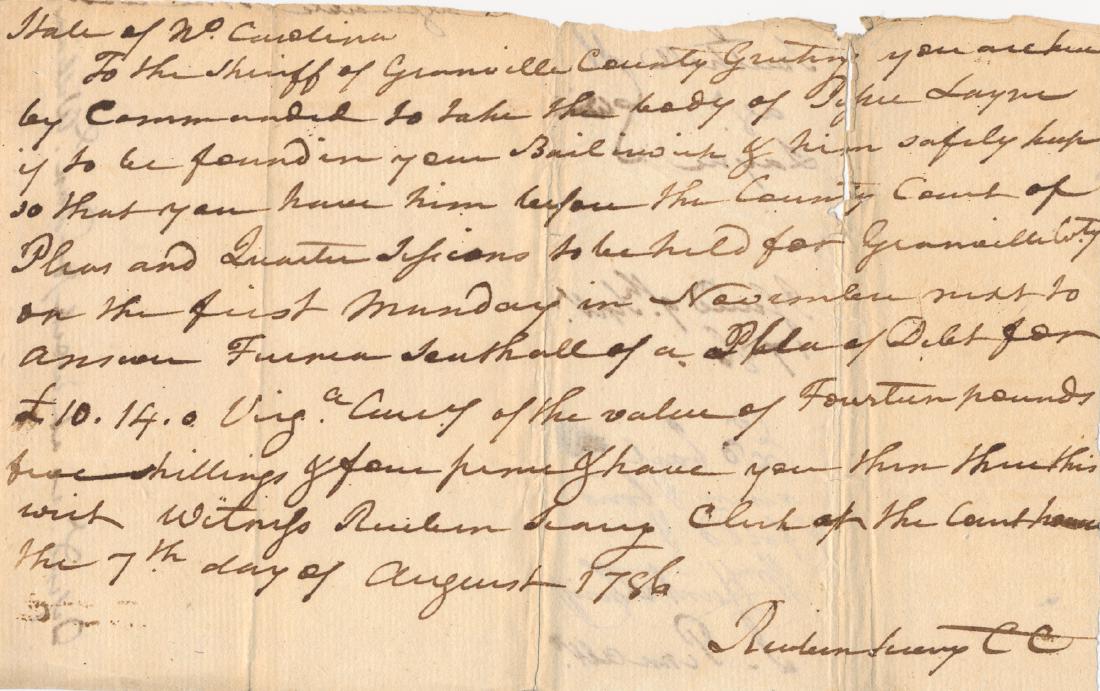 State of No. Carolina
To the Shiriff of Granville County Greting you are here
by Commanded to take the body of Layne
if to be found in your Bailiwick & him safely keep
so that you have him before the County Court of
Pleas and Quarter Sessions to be held for Granville Coty
on the first Munday in November next to
answer Furnea Southall of a Plea of Debt for
£10.14.0 Virga Curcy of the value of Fourteen pounds
five shillings & four pence & have you then there this
writ Witness Reuben Searcy Clerk of the Court house
the 7th day of August 1786
Reuben Searcy CC